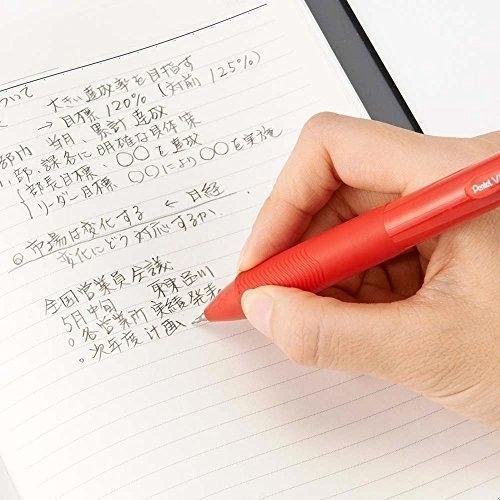 ついて
大きい達成率を目指す
→目標120% (対前125%)
部内 当月、累計達成
部、課名に明確な具体策
部長目標、〇〇を達成
リーダー目標 〇〇により〇〇を実施
◎市場は変化する ← 日経
変化にどう対応するか、
全国営業員会議
5月中旬 東品川
。各営業所 実績発表
。次年度計画
Pentel